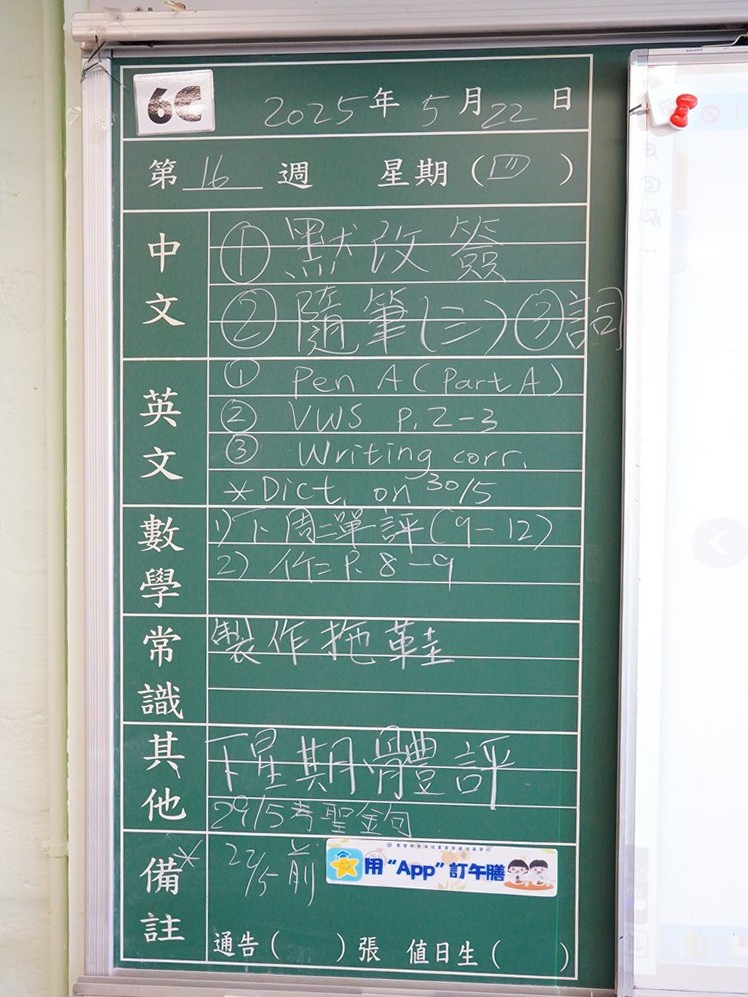 6C 2025年5月22日
第16週 星期(四)
中文
① 默改簽
② 隨筆(三) ③詞
英文
① Pen A (Part A)
② VWS P.2-3
③ Writing corr.
*Dict. on 30/5
數學
1) 下周二單評(9-12)
2) 作二 P.8-9
常識
製作拖鞋
其他
下星期體評
29/5考聖金句
備註
* 22/5前
用“App”訂午膳
通告( )張 值日生( )